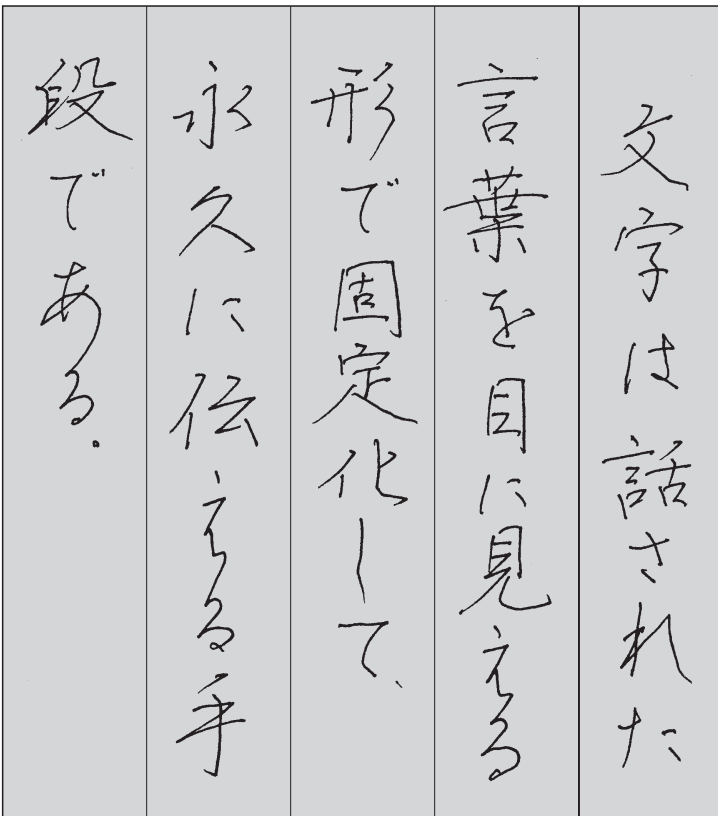 文字は話された
言葉を目に見える
形で固定化して、
永久に伝える手
段である。